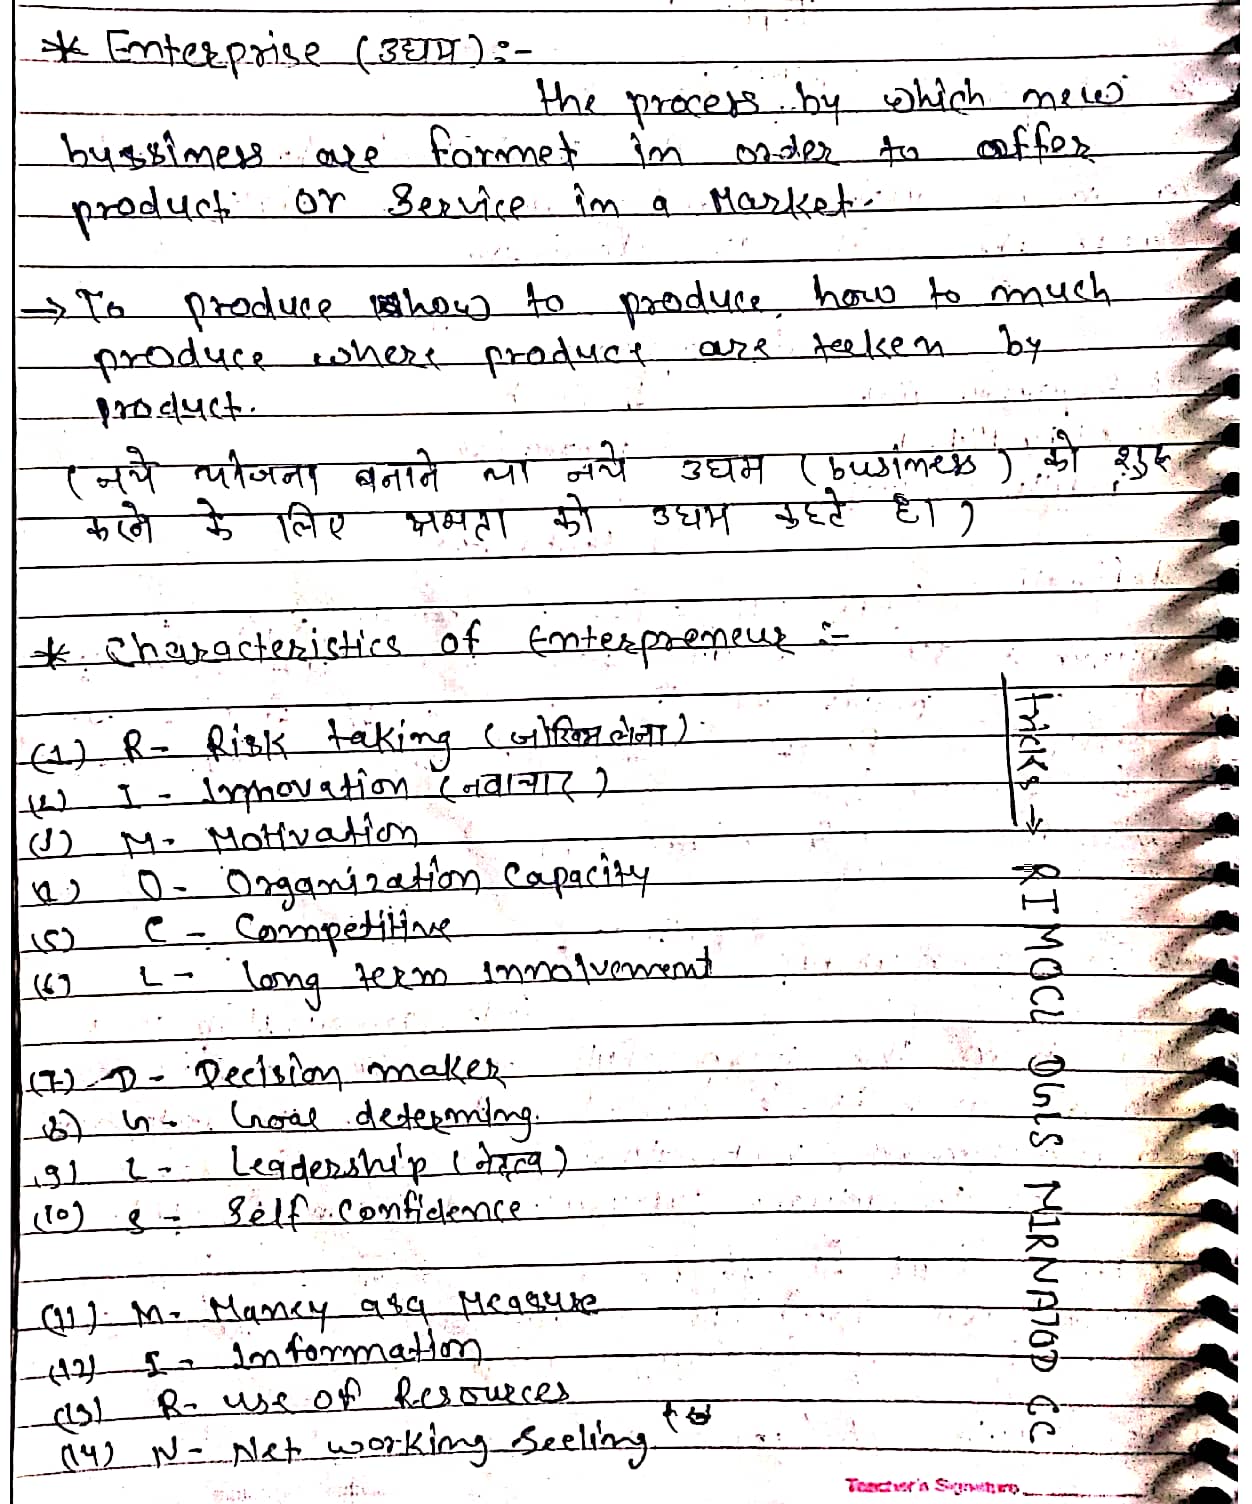 * Enterprise (उद्यम) :-
the process by which new
bussiness are formet in order to offer
product or Service in a Market.
→ To produce how to produce, how to much
produce where product are teeken by
product.
(नये योजना बनाने या नये उद्यम (business) को शुरू
करने के लिए क्षमता को उद्यम कहते है।)
* Characteristics of Enterpreneur :-
(1) R- Risk taking (जोखिम लेना)
(2) I - Innovation (नवाचार)
(3) M- Motivation
(4) O- Organization Capacity
(5) C - Competitive
(6) L - long term Innolvement
(7) D - Decision maker
(8) G - Goal determing.
(9) L - Leadership (नेतृत्व)
(10) S - Self Confidence
(11) M- Maney asa Measure
(12) I - Information
(13) R- use of Resources
(14) N - Net working Seeling
tricks → RIMOCL DGLS MIRNATOD CC
Teacher's Signature